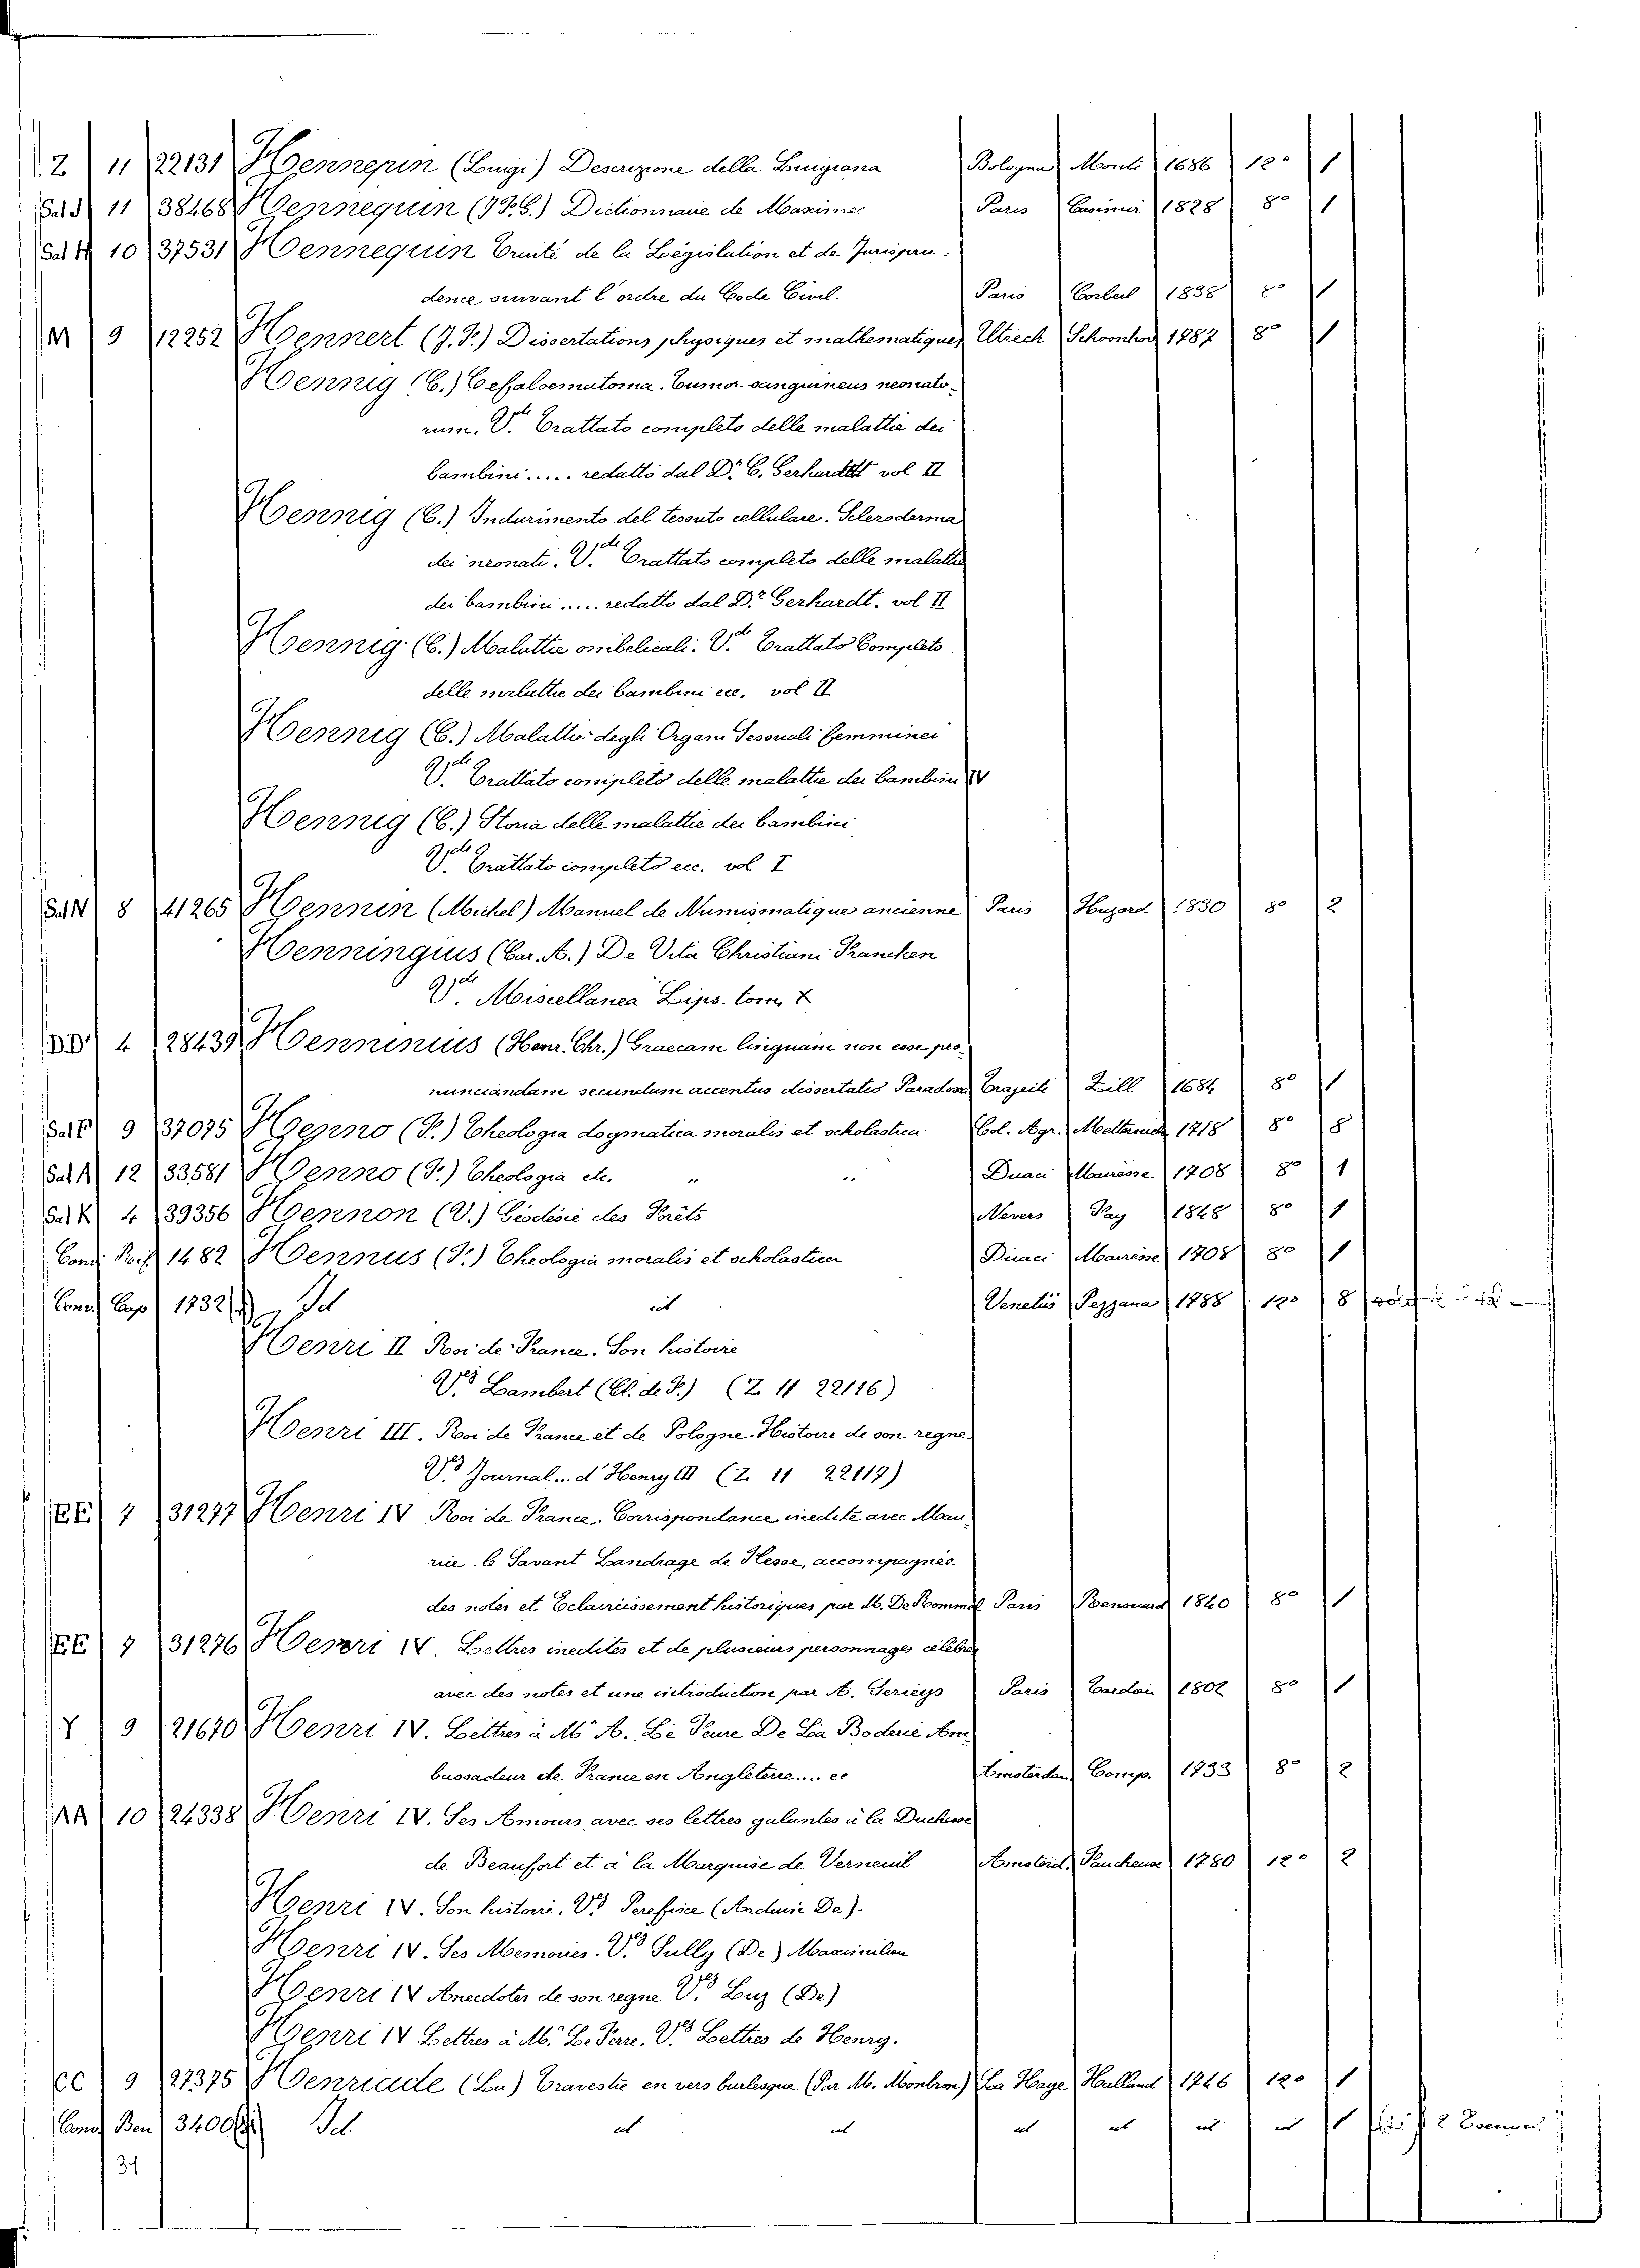 Z 11 22131 Hennepin (Luigi) Descrizione della Luigiana Bologna Monti 1686 12° 1
Sal J 11 38468 Hennequin (J.F.S.) Dictionnaire de Maximes Paris Casimir 1828 8° 1
Sal H 10 37531 Hennequin Traité de la Législation et de Jurispru-
dence suivant l'ordre du Code Civil. Paris Corbeil 1838 8° 1
M 9 12252 Hennert (J.F.) Dissertations physiques et mathematiques Utrech Schoonhov 1787 8° 1
Hennig (C.) Cefaloematoma. Tumor sanguineus neonato-
rum. V.de Trattato completo delle malattie dei
bambini..... redatto dal Dr. C. Gerhardt vol II
Hennig (C.) Indurimento del tessuto cellulare. Scleroderma
dei neonati. V.de Trattato completo delle malattie
dei bambini..... redatto dal Dr. Gerhardt. vol II
Hennig (C.) Malattie ombelicali. V.de Trattato Completo
delle malattie dei bambini ecc. vol II
Hennig (C.) Malattie degli Organi Sessuali femminei
V.de Trattato completo delle malattie dei bambini IV
Hennig (C.) Storia delle malattie dei bambini
V.de Trattato completo ecc. vol I
Sal N 8 41265 Hennin (Michel) Manuel de Numismatique ancienne Paris Huzard 1830 8° 2
Henningius (Car. A.) De Vita Christiani Francken
V.de Miscellanea Lips. tom. X
DD 4 28439 Henninius (Henr. Chr.) Graecam linguam non esse pro-
nunciandam secundum accentus dissertatio Paradoxa Trajecti Zill 1684 8° 1
Sal E 9 37075 Henno (F.) Theologia dogmatica moralis et scholastica Col. Agr. Metternich 1718 8° 8
Sal A 12 33581 Henno (F.) Theologia etc. " " Duaci Mairesse 1708 8° 1
Sal K 4 39356 Hennon (V.) Géodésie des Forêts Nevers Fay 1848 8° 1
Cond. Rif 1482 Hennus (F.) Theologia moralis et scholastica Duaci Mairesse 1708 8° 1
Cond Cap 1732 Id id Venetiis Pezzana 1788 12° 8
Henri II Roi de France. Son histoire
V.es Lambert (Cl. de F.) (Z 11 22116)
Henri III. Roi de France et de Pologne. Histoire de son regne
V.es Journal... d'Henry III (Z 11 22117)
EE 7 31277 Henri IV Roi de France. Corrispondance inedite avec Mau-
rice le Savant Landrage de Hesse, accompagnée
des notes et Eclaircissement historiques par M. De Rommel Paris Renouard 1840 8° 1
EE 7 31276 Henri IV. Lettres inedites et de plusieurs personnages célèbres
avec des notes et une introduction par A. Serieys Paris Tardieu 1802 8° 1
Y 9 21670 Henri IV. Lettres à Mr A. Le Feure De La Boderie Am-
bassadeur de France en Angleterre.... ec Amsterdam Comp. 1733 8° 2
AA 10 24338 Henri IV. Ses Amours, avec ses lettres galantes à la Duchesse
de Beaufort et à la Marquise de Verneuil Amsterd. 1780 12° 2
Henri IV. Son histoire. V.es Perefixe (Arduin De).
Henri IV. Ses Memoires. V.es Sully (De) Maximilien
Henri IV Anecdotes de son regne V.es Luz (De)
Henri IV Lettres à M. Le Ferre. V.es Lettres de Henry.
CC 9 27375 Henriade (La) Travestie en vers burlesque (Par M. Monbron) La Haye Halland 1746 12° 1
Cond Ben 3400 Id. id id id id id id 1
31